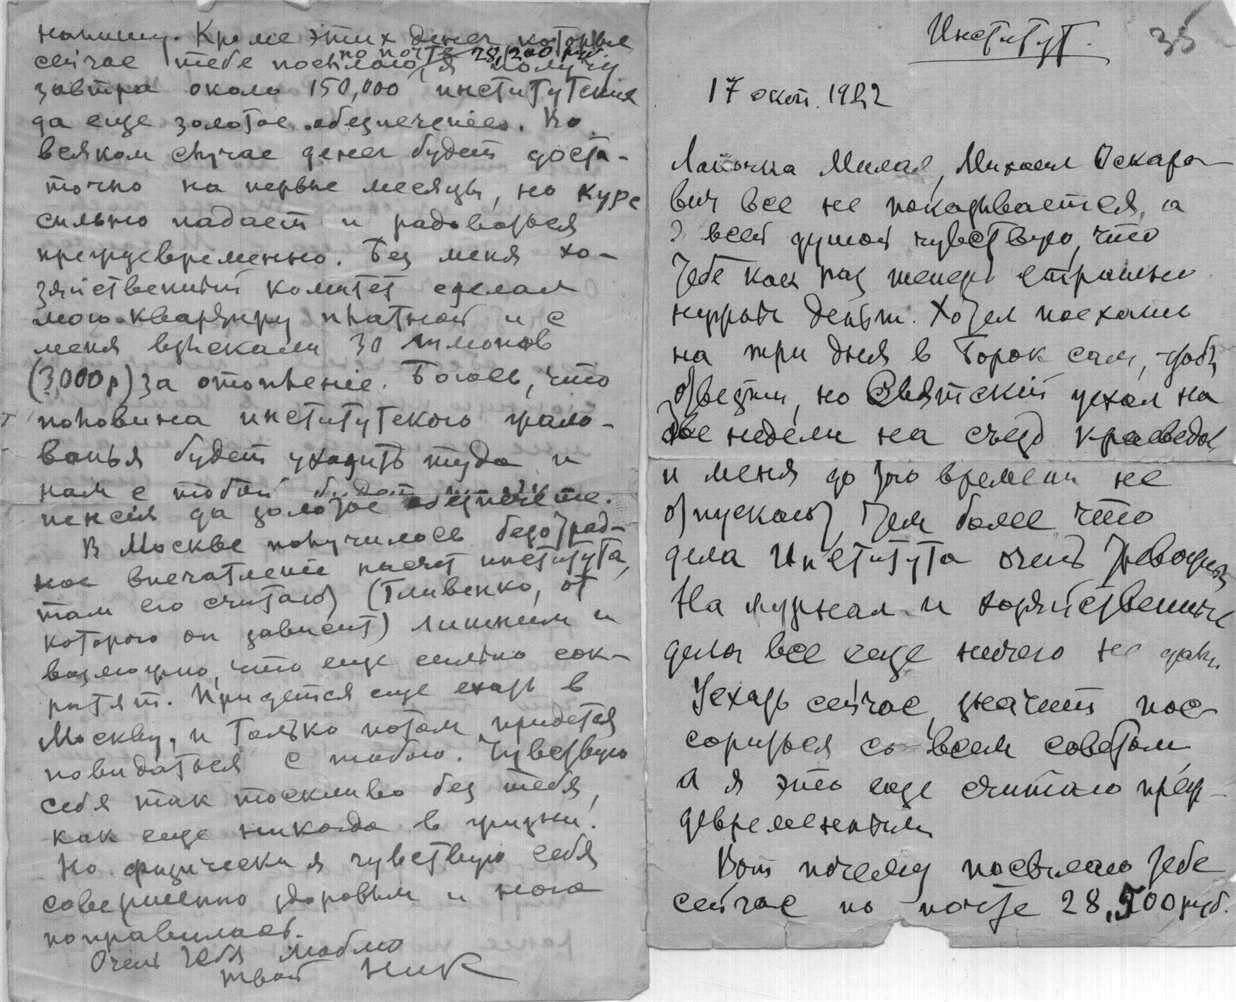 Институт.
35
17 окт. 1922
Лапочка Милая, Михаил Оскаро-
вич все не показывается, а
я всей душой чувствую, что
тебе как раз теперь страшно
нужны деньги. Хотел поехать
на три дня в Торок сам, чтобы
отвезти, но Святскій уехал на
две недели на съезд краеведов
и меня до того времени не
отпускают, тем более что
дела Института очень тревожны
На журнал и хозяйственные
дела все еще ничего не дали.
Уехать сейчас, значит пос-
сориться со всем советом,
а я это еще считаю преж-
девременным
Вот почему посылаю тебе
сейчас по почте 28,500 руб.
напишу. Кроме этих денег, которые
сейчас тебе посылаю по почте 28,200 руб. я получу
завтра около 150,000 институтских
да еще золотое обезпеченіе. Во
всяком случае денег будет доста-
точно на первые месяцы, но курс
сильно падает и радоваться
преждевременно. Без меня хо-
зяйственный комитет сделал
мою квартиру платной и с
меня взыскали 30 лимонов
(3000р) за отопленіе. Боюсь, что
половина институтского жало-
ванья будет уходить туда и
нам с тобой будет
пенсія да золотое обезпечение.
В Москве получилось безотрад-
ное впечатленіе насчет института,
там его считают (Гливенко, от
которого он зависит) лишним и
возможно, что еще сильно сок-
ратят. Придется еще ехать в
Москву, и только потом придется
повидаться с тобою. Чувствую
себя так тоскливо без тебя,
как еще никогда в жизни!
Но физически я чувствую себя
совершенно здоровым и нога
поправилась.
Очень тебя люблю
твой Ник